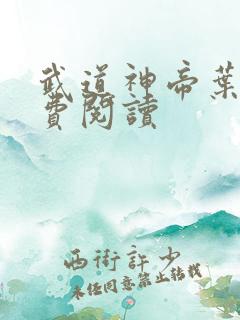 武道神帝葉
費閱讀
西街許少
未經同意禁止轉載